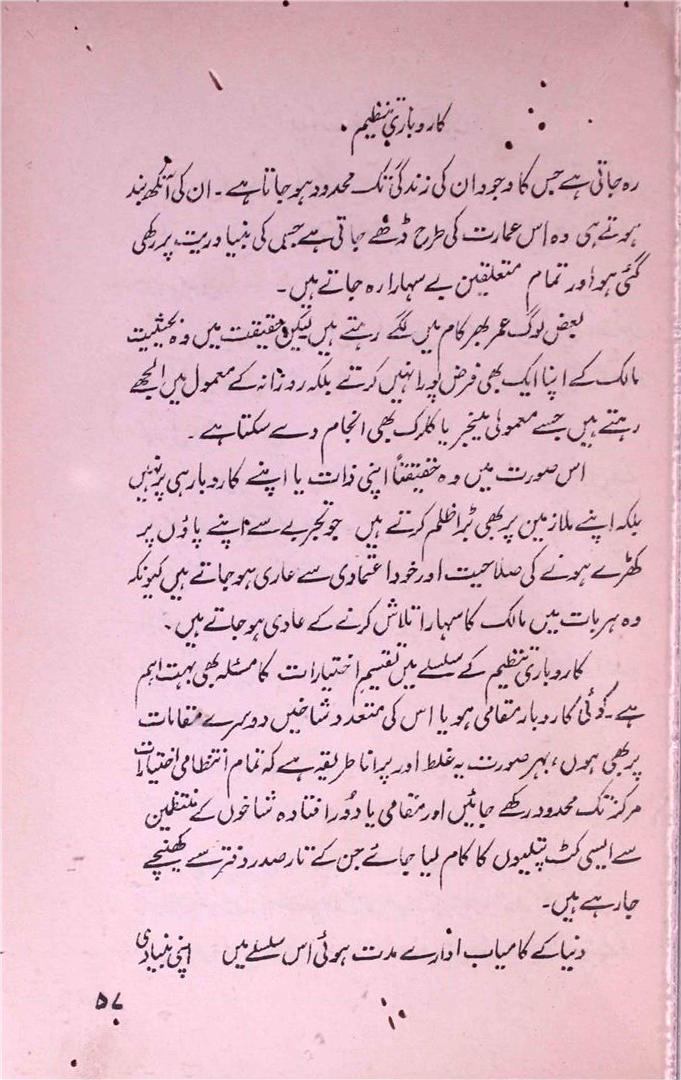 کاروباری تنظیم
رہ جاتی ہے جس کا وجود ان کی زندگی تک محدود ہو جاتا ہے۔ ان کی آنکھ بند
ہوتے ہی وہ اس عمارت کی طرح ڈھے جاتی ہے جس کی بنیاد ریت پر رکھی
گئی ہو اور تمام متعلقین بے سہارا رہ جاتے ہیں۔
بعض لوگ عمر بھر کام میں لگے رہتے ہیں لیکن حقیقت میں وہ بحیثیت
مالک کے اپنا ایک بھی فرض پورا نہیں کرتے بلکہ روزانہ کے معمول میں الجھے
رہتے ہیں جسے معمولی مینجر یا کلرک بھی انجام دے سکتا ہے۔
اس صورت میں وہ حقیقتاً اپنی ذات یا اپنے کاروبار ہی پر نہیں
بلکہ اپنے ملازمین پر بھی بڑا ظلم کرتے ہیں جو تجربے سے اپنے پاؤں پر
کھڑے ہونے کی صلاحیت اور خود اعتمادی سے عاری ہو جاتے ہیں کیونکہ
وہ ہر بات میں مالک کا سہارا تلاش کرنے کے عادی ہو جاتے ہیں۔
کاروباری تنظیم کے سلسلے میں تقسیم اختیارات کا مسئلہ بھی بہت اہم
ہے۔ کوئی کاروبار مقامی ہو یا اس کی متعدد شاخیں دوسرے مقامات
پر بھی ہوں، بہر صورت یہ غلط اور پرانا طریقہ ہے کہ تمام انتظامی اختیارات
مرکز تک محدود رکھے جائیں اور مقامی یا دُور افتادہ شاخوں کے منتظمین
سے ایسی کٹ پتلیوں کا کام لیا جائے جن کے تار صدر دفتر سے کھینچے
جا رہے ہیں۔
دنیا کے کامیاب ادارے مدت ہوئی اس سلسلے میں اپنی بنیادی
۵۷